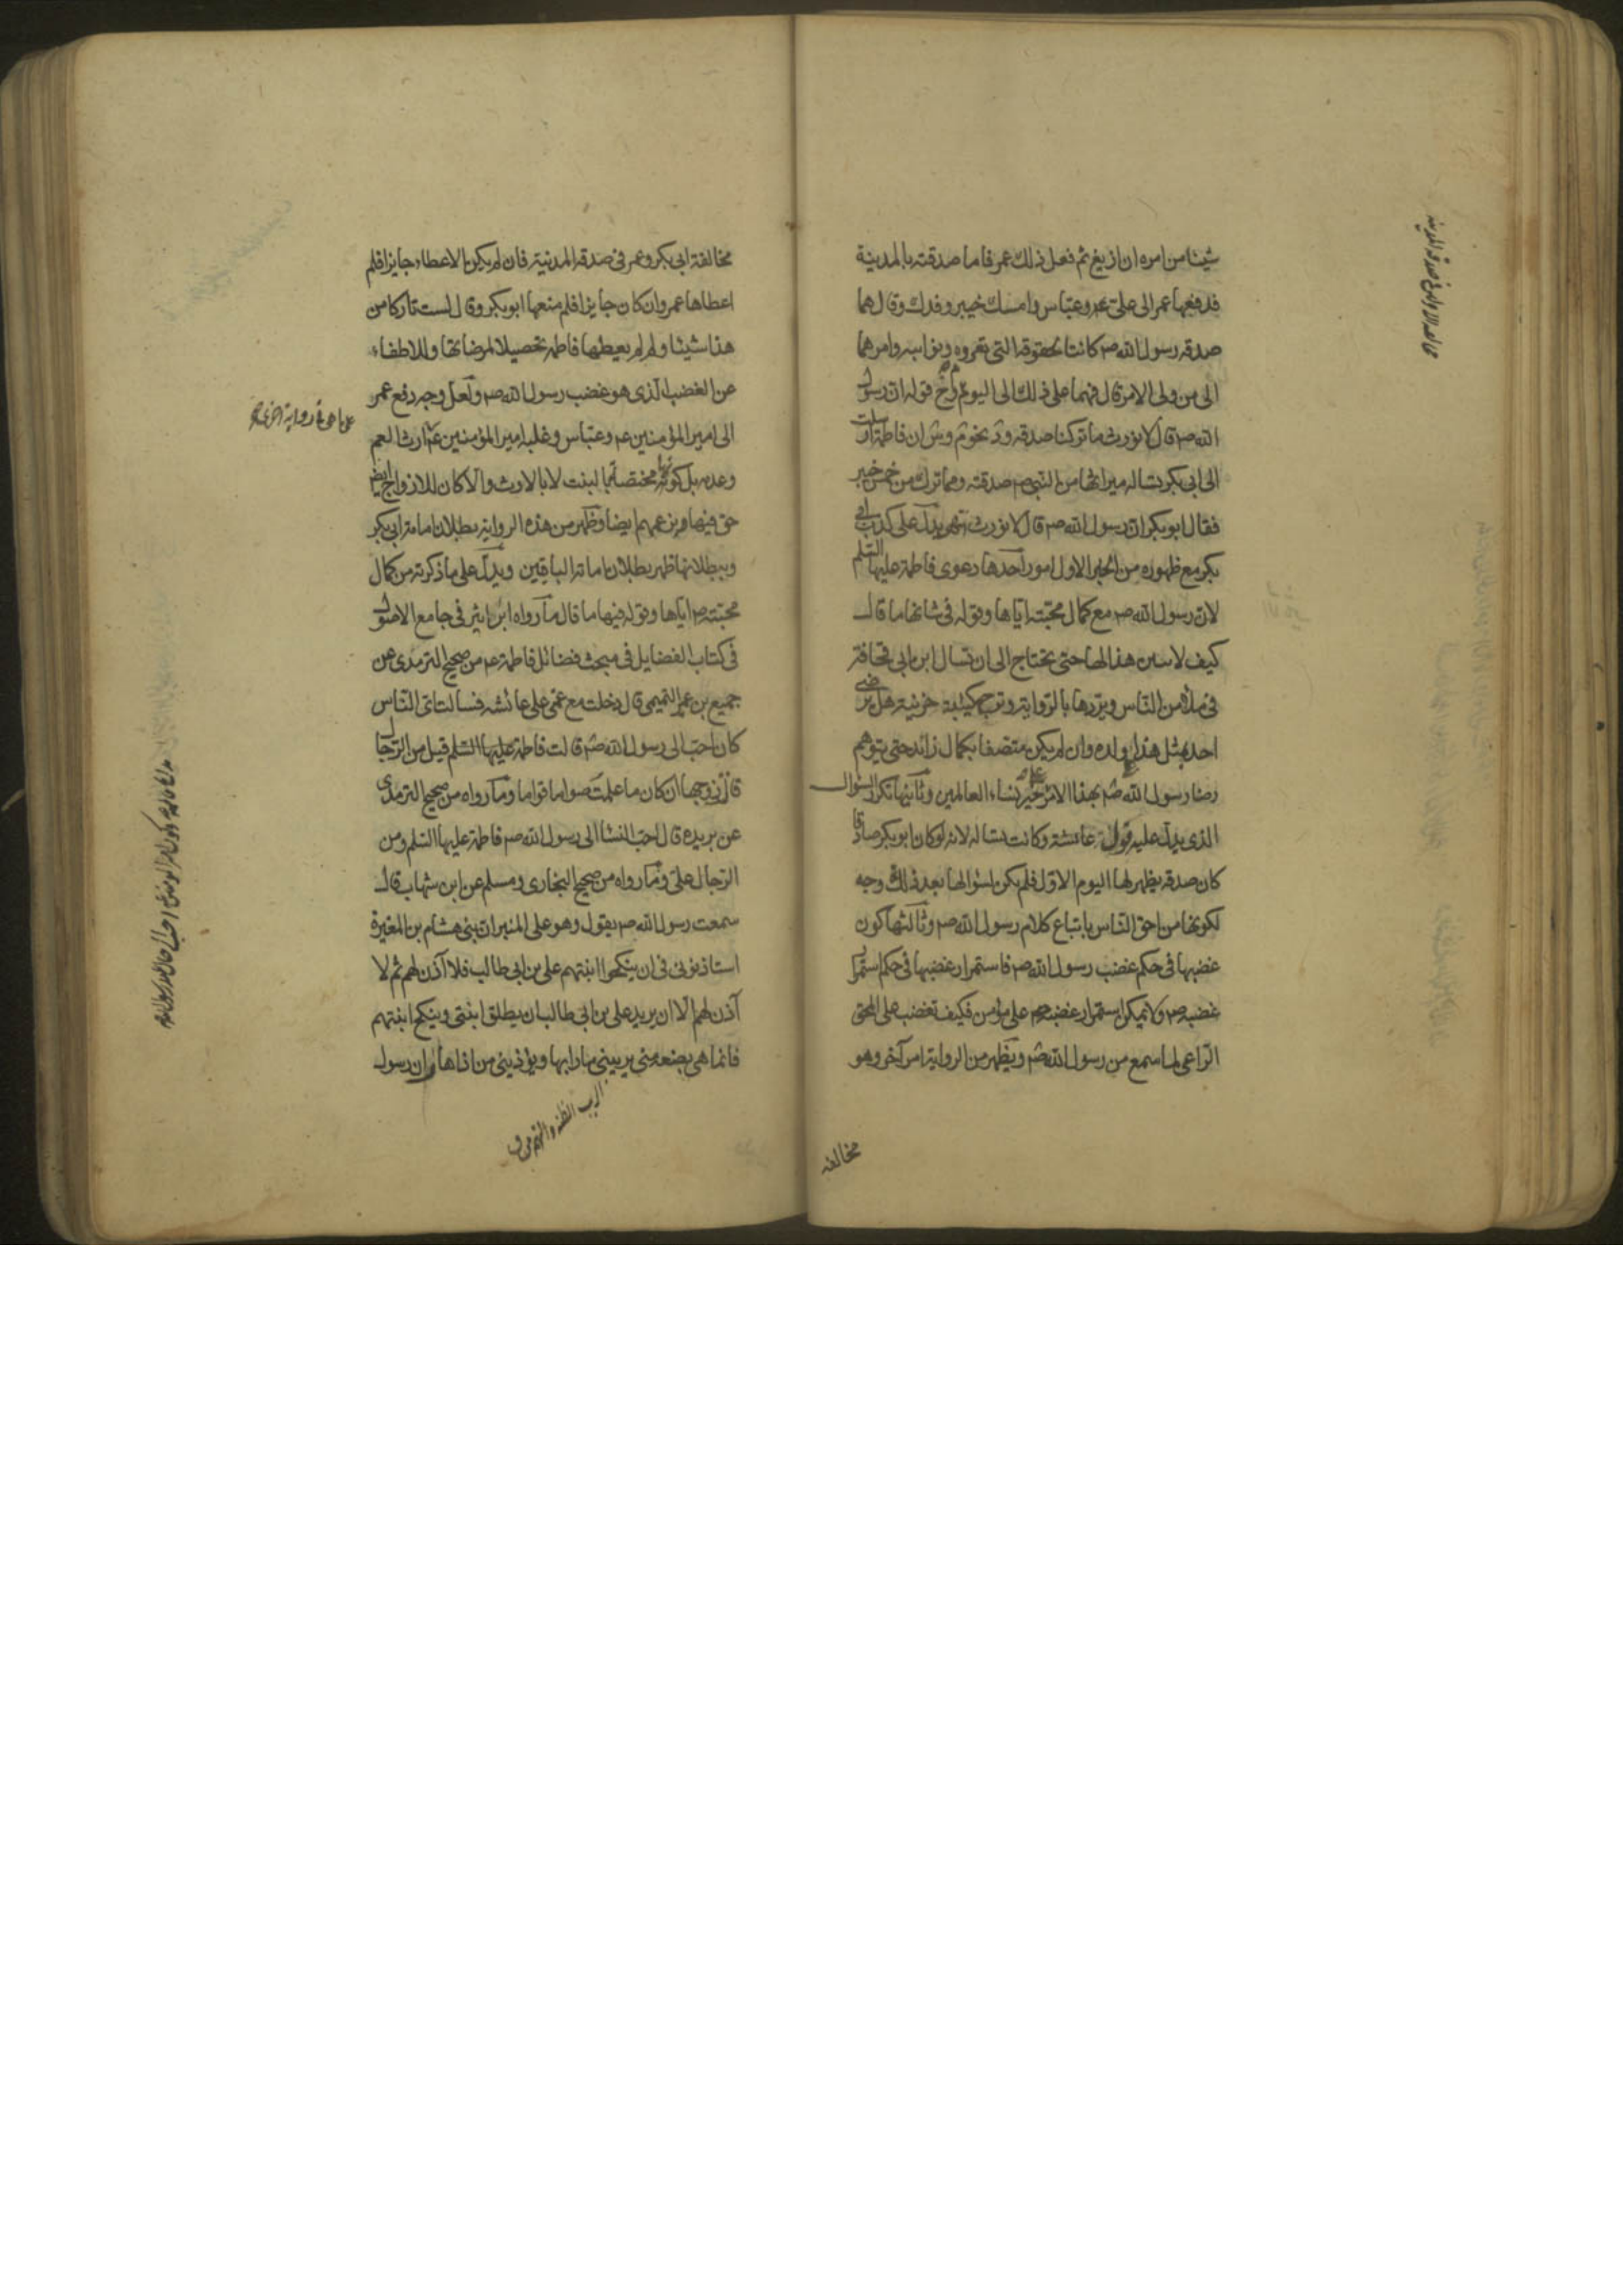 شيئا من امره ان ازيغ ثم فعل ذلك عمر فاما صدقته بالمدينة
فدفعها عمر الى علي عم وعباس وامسك خيبر وفدك وقال هما
صدقه رسول الله صم كانتا لحقوقه التى تعروه ونوائبه وامرهما
الى من ولى الامر قال فهما على ذلك الى اليوم قوله ان رسول
الله صم قال لا نورث ما تركنا صدقه ان فاطمة ارسلت
الى ابى بكر تساله ميراثها من النبى صم صدقته ومما ترك من خمس خيبر
فقال ابو بكر ان رسول الله صم قال لا نورث يدل على كذب ابى
بكر مع ظهوره من الخبر الاول امور احدها دعوى فاطمة عليها السلم
لان رسول الله صم مع كمال محبته اياها وقوله فى شانها ما قال
كيف لا يبين هذا لها حتى تحتاج الى ان تسال ابن ابى قحافة
فى ملأ من الناس ويردها بالرواية وترجع كئيبة حزينة هل يرضى
احد بمثل هذا لولده وان لم يكن متصفا بكمال زائد حتى يتوهم
رضا رسول الله صم بهذا الامر على خير نساء العالمين وثانيها تكرار السؤال
الذى يدل عليه قول عائشة وكانت تساله لانه لو كان ابو بكر صادقا
كان صدقه يظهر لها اليوم الاول فلم يكن لسؤالها بعد ذلك وجه
لكونها من احق الناس باتباع كلام رسول الله صم وثالثها كون
غضبها فى حكم غضب رسول الله صم فاستمرار غضبها فى حكم استمرار
غضبه صم ولا يمكن استمرار غضبه صم على مؤمن فكيف تغضب على المحق
الراعى لما سمع من رسول الله صم ويظهر من الرواية امر آخر وهو
مخالفة
مخالفة ابى بكر وعمر فى صدقة المدينة فان لم يكن الاعطاء جايزا فلم
اعطاها عمر وان كان جايزا فلم منعها ابو بكر وقال لست تاركا من
هذا شيئا ولم لم يعطها فاطمة تحصيلا لمرضاتها وللاطفاء
عن الغضب الذى هو غضب رسول الله صم ولعل وجه دفع عمر
الى امير المؤمنين عم وعباس وغلبه امير المؤمنين عم ارث العم
وعدمه بل كونه مختصا بالبنت لا بالارث والا كان للازواج ايض
حق فيها بزعمهم ايضا وظهر من هذه الرواية بطلان امامة ابى بكر
وببطلانها ظهر بطلان امامة الباقين ويدل على ما ذكرته من كمال
محبته صم اياها وقوله فيها ما قال ما رواه ابن اثير فى جامع الاصول
فى كتاب الفضايل فى مبحث فضائل فاطمة عم من صحيح الترمذى عن
جميع بن عمير التميمى قال دخلت مع عمتى على عائشه فسالت اى الناس
كان احب الى رسول الله صم قالت فاطمة عليها السلم قيل من الرجال
قالت زوجها ان كان ما علمت صواما قواما وما رواه من صحيح الترمذى
عن بريده قال احب النسا الى رسول الله صم فاطمة عليها السلم ومن
الرجال على وما رواه من صحيح البخارى ومسلم عن ابن شهاب قال
سمعت رسول الله صم يقول وهو على المنبر ان بنى هشام بن المغيرة
استاذنونى فى ان ينكحوا ابنتهم على بن ابى طالب فلا آذن لهم ثم لا
آذن لهم الا ان يريد على بن ابى طالب ان يطلق ابنتى وينكح ابنتهم
فانما هى بضعة منى يريبنى ما رابها ويؤذينى من اذاها وان رسول